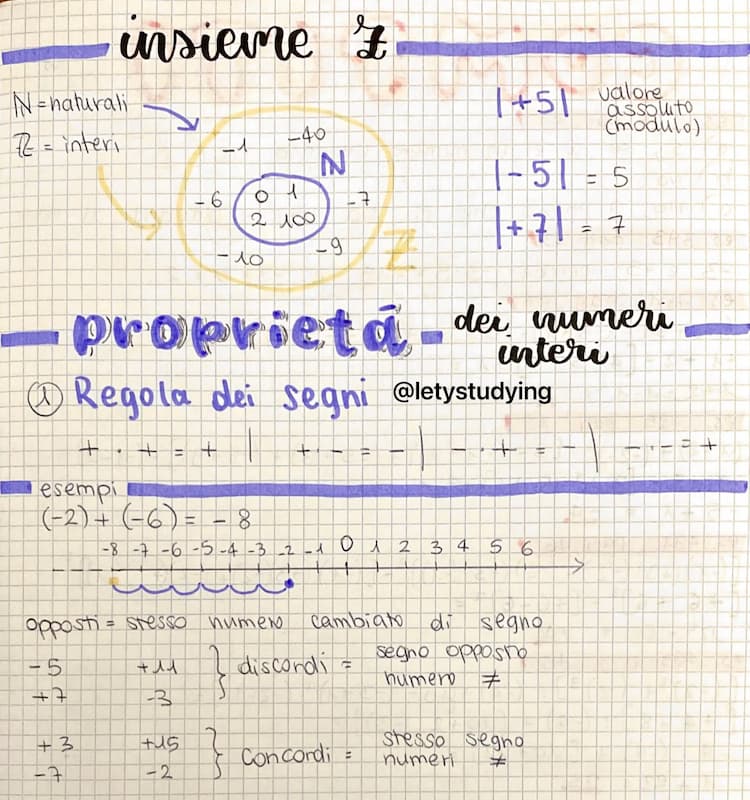 insieme Z
N = naturali
Z = interi
-1 -40
N
-6 0 1 -7
2 100
-10 -9
Z
|+5| valore
assoluto
(modulo)
|-5| = 5
|+7| = 7
proprietá dei numeri
interi
1 Regola dei segni @letystudying
+ · + = + | + · - = - | - · + = - | - · - = +
esempi
(-2) + (-6) = - 8
-8 -7 -6 -5 -4 -3 -2 -1 0 1 2 3 4 5 6
opposti = stesso numero cambiato di segno
-5 +11 } discordi = segno opposto
+7 -3 numero ≠
+3 +15 } concordi = stesso segno
-7 -2 numeri ≠